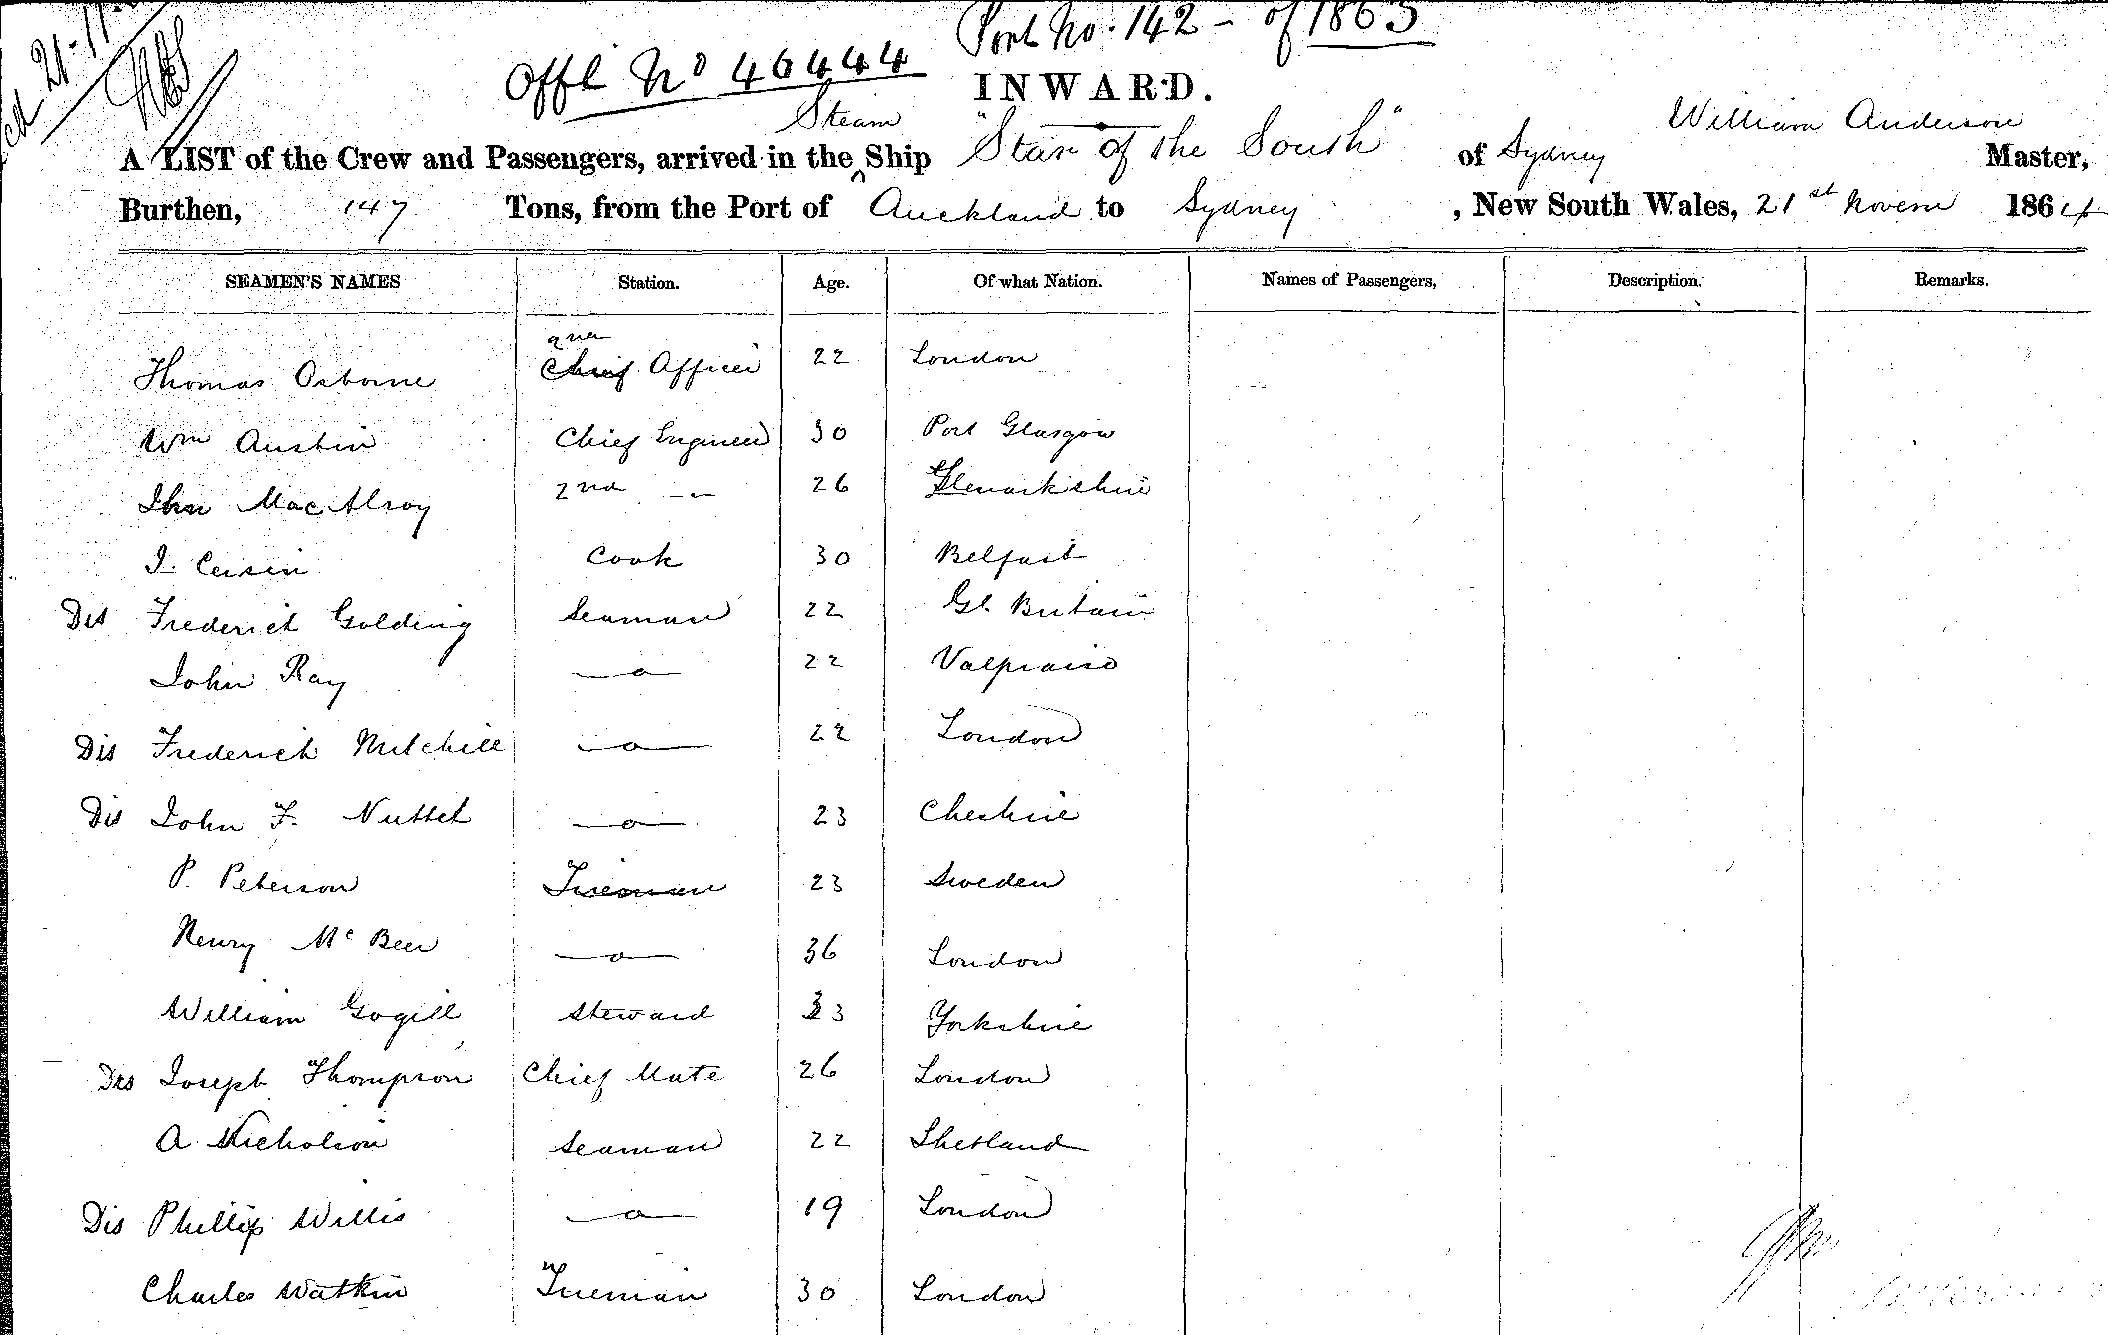 21-11
Port No. 142 - of 1863
Offl No 46444
INWARD.
Steam
William Anderson
A LIST of the Crew and Passengers, arrived in the Ship "Star of the South" of Sydney Master,
Burthen, 147 Tons, from the Port of Auckland to Sydney, New South Wales, 21st Novem 1864
SEAMEN'S NAMES Station. Age. Of what Nation. Names of Passengers, Description. Remarks.
2nd
Thomas Osborne Chief Officer 22 London
Wm Austin Chief Engineer 30 Port Glasgow
Jhn MacAlroy 2nd - 26
J. Cersin Cook 30 Belfast
Dis Frederick Golding Seaman 22 Gt. Britain
John Ray —o— 22 Valpraiso
Dis Frederick Mitchell —o— 22 London
Dis John F. Nuttet —o— 23 Cheshire
P. Peterson Fireman 23 Sweden
Henry McBeer —o— 36 London
William Gogill Steward 33 Yorkshire
Dis Joseph Thompson Chief Mate 26 London
A Nicholson Seaman 22 Shetland
Dis Phillip Willis —o— 19 London
Charles Watkin Fireman 30 London